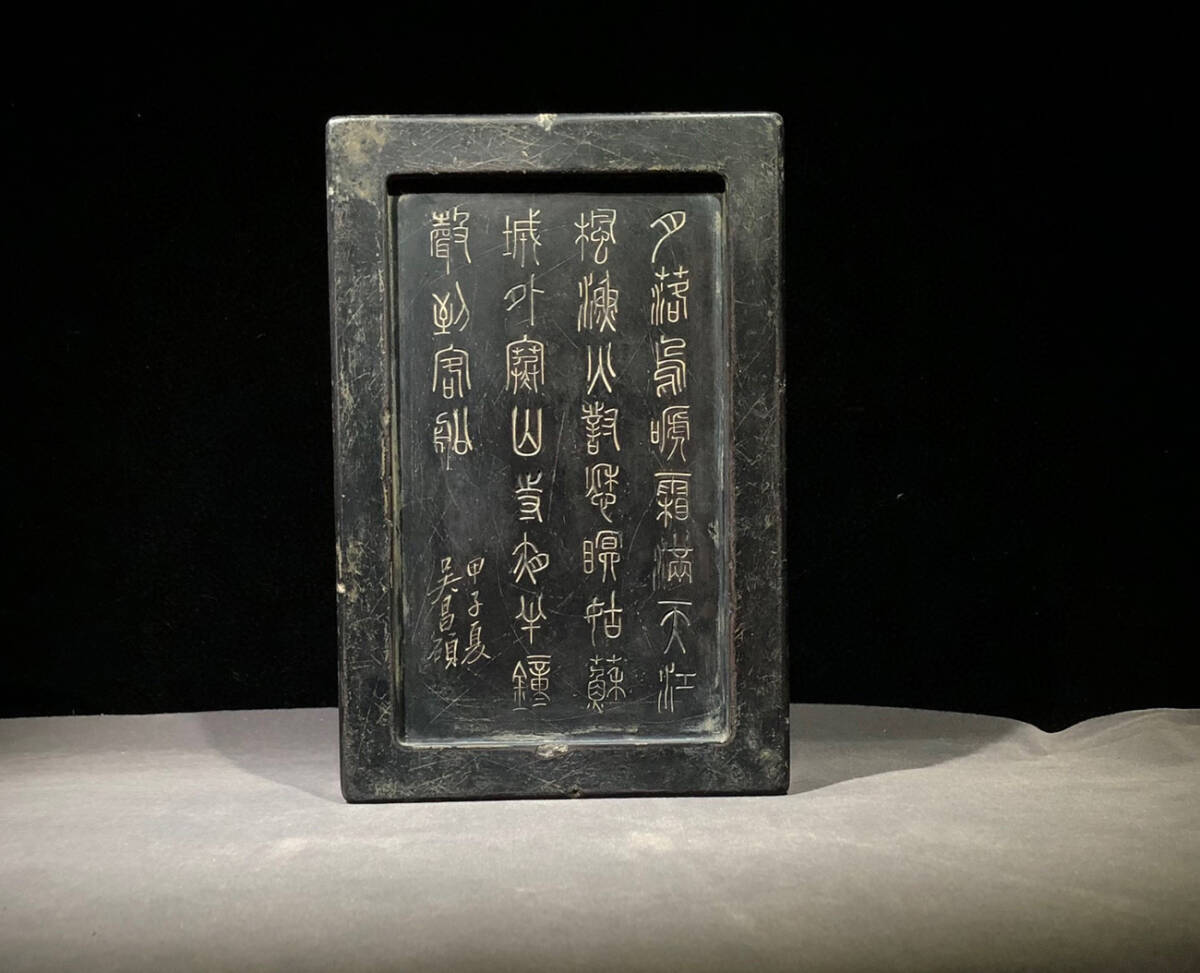 月落烏嗁霜滿天江
楓漁火對愁眠姑蘇
城外寒山寺夜半鐘
聲到客船
甲子夏
吳昌碩